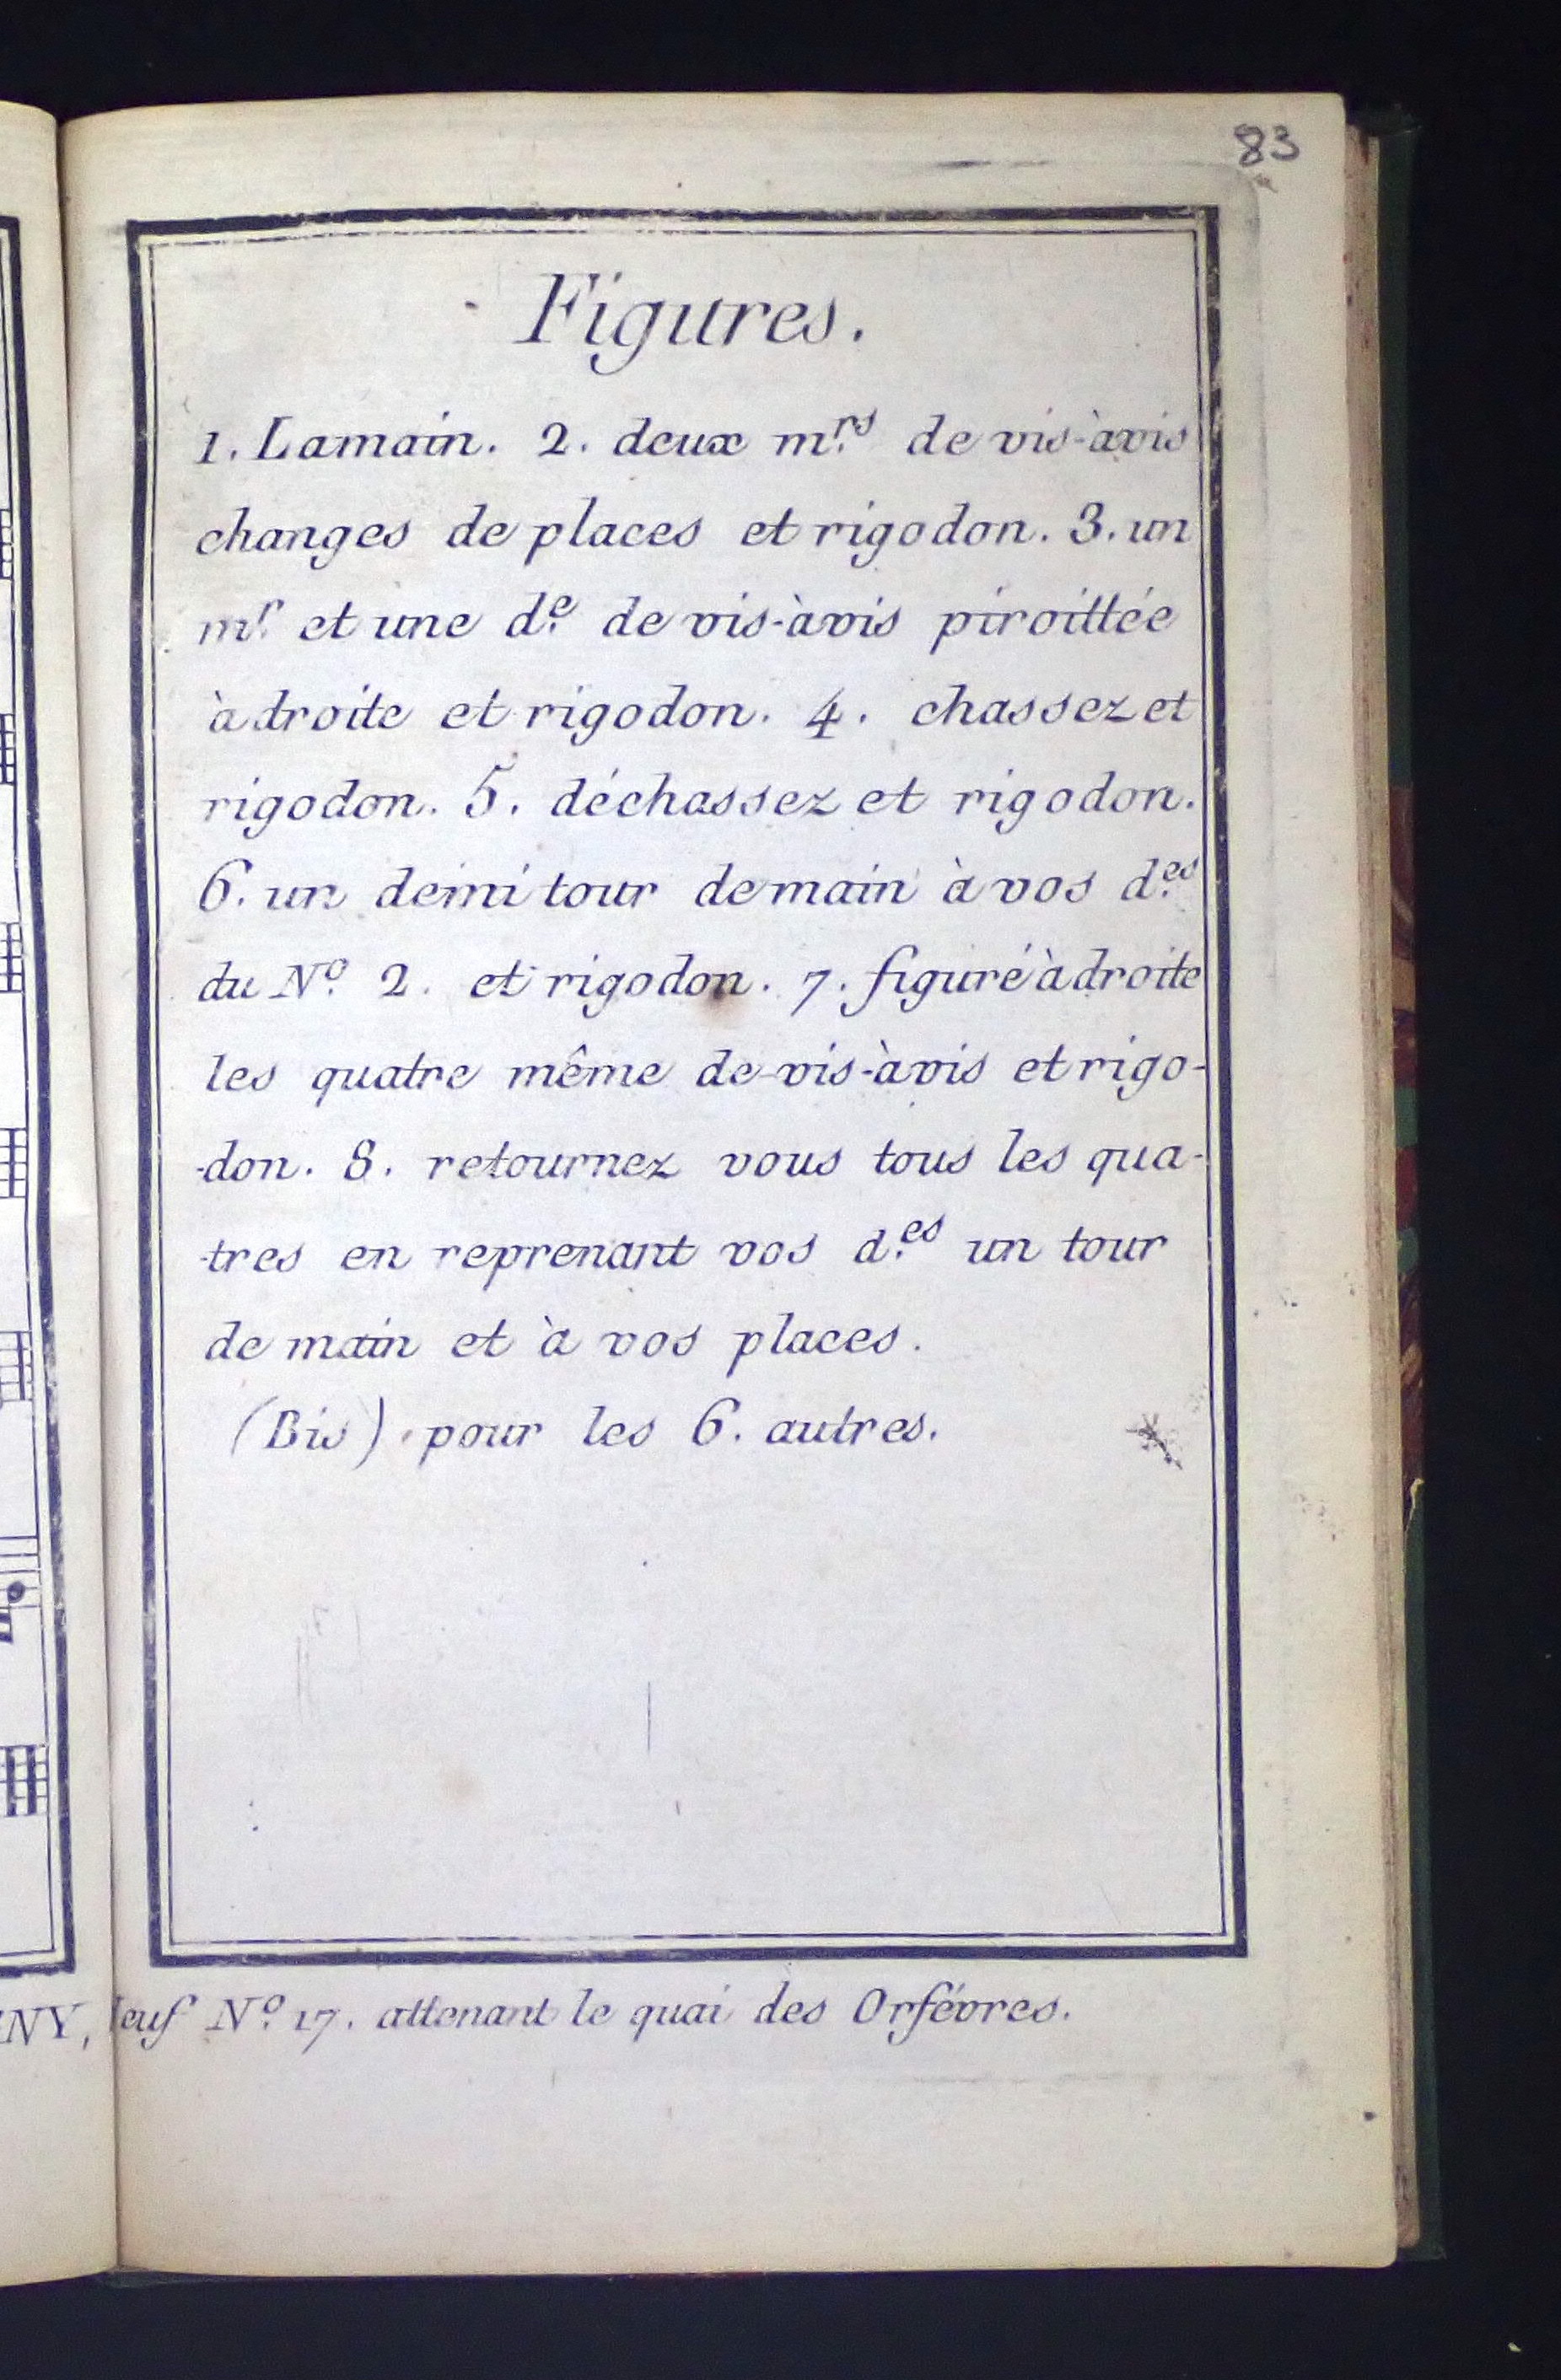 83
Figures.
1. Lamain. 2. deux m.rs de vis-àvis
changes de places et rigodon. 3. un
m.r et une d.e de vis-àvis piroittée
à droite et rigodon. 4. chassez et
rigodon. 5. déchassez et rigodon.
6. un demi tour de main à vos d.es
du N.o 2. et rigodon. 7. figuré à droite
les quatre même de vis-àvis et rigo-
-don. 8. retournez vous tous les qua-
-tres en reprenant vos d.es un tour
de main et à vos places.
(Bis) pour les 6. autres.
NY, euf N.o 17. attenant le quai des Orfévres.